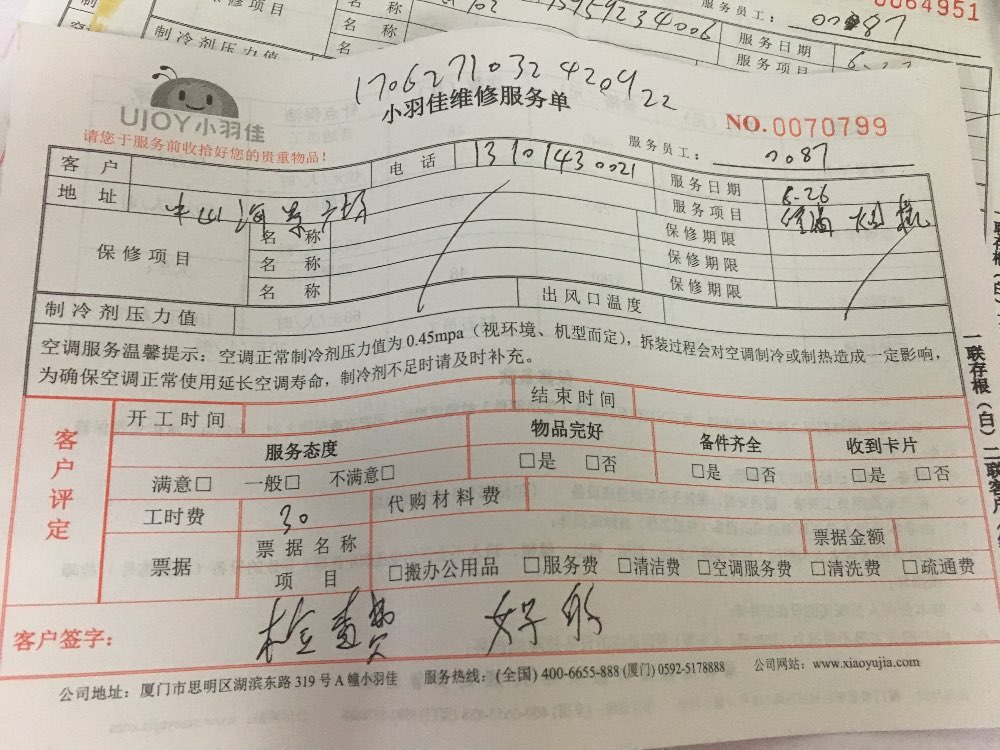 0064951
保修项目
名 称
服务员工：
服务日期
制冷剂压力值
名 称
服务项目
17062710324204922
UJOY小羽佳
小羽佳维修服务单
NO.0070799
请您于服务前收拾好您的贵重物品！
服务员工： 0087
客 户 电 话 13101430021 服务日期 6.26
地 址 服务项目
保修项目 名 称 保修期限
名 称 保修期限
名 称 保修期限
制冷剂压力值 出风口温度
空调服务温馨提示：空调正常制冷剂压力值为 0.45mpa（视环境、机型而定），拆装过程会对空调制冷或制热造成一定影响，
为确保空调正常使用延长空调寿命，制冷剂不足时请及时补充。
客户评定
开工时间 结束时间
服务态度 物品完好 备件齐全 收到卡片
满意□ 一般□ 不满意□ □是 □否 □是 □否 □是 □否
工时费 30 代购材料费
票据 票据名称 票据金额
项 目 □搬办公用品 □服务费 □清洁费 □空调服务费 □清洗费 □疏通费
客户签字： 检查费
公司地址：厦门市思明区湖滨东路 319 号 A 幢小羽佳 服务热线：(全国) 400-6655-888 (厦门) 0592-5178888 公司网站：www.xiaoyujia.com
一联存根（白）二联客户